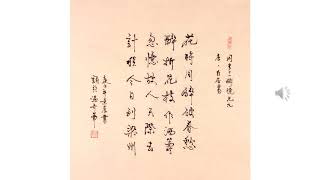 同李十一醉憶元九
唐·白居易
花時同醉破春愁
醉折花枝作酒籌
忽憶故人天際去
計程今日到梁州